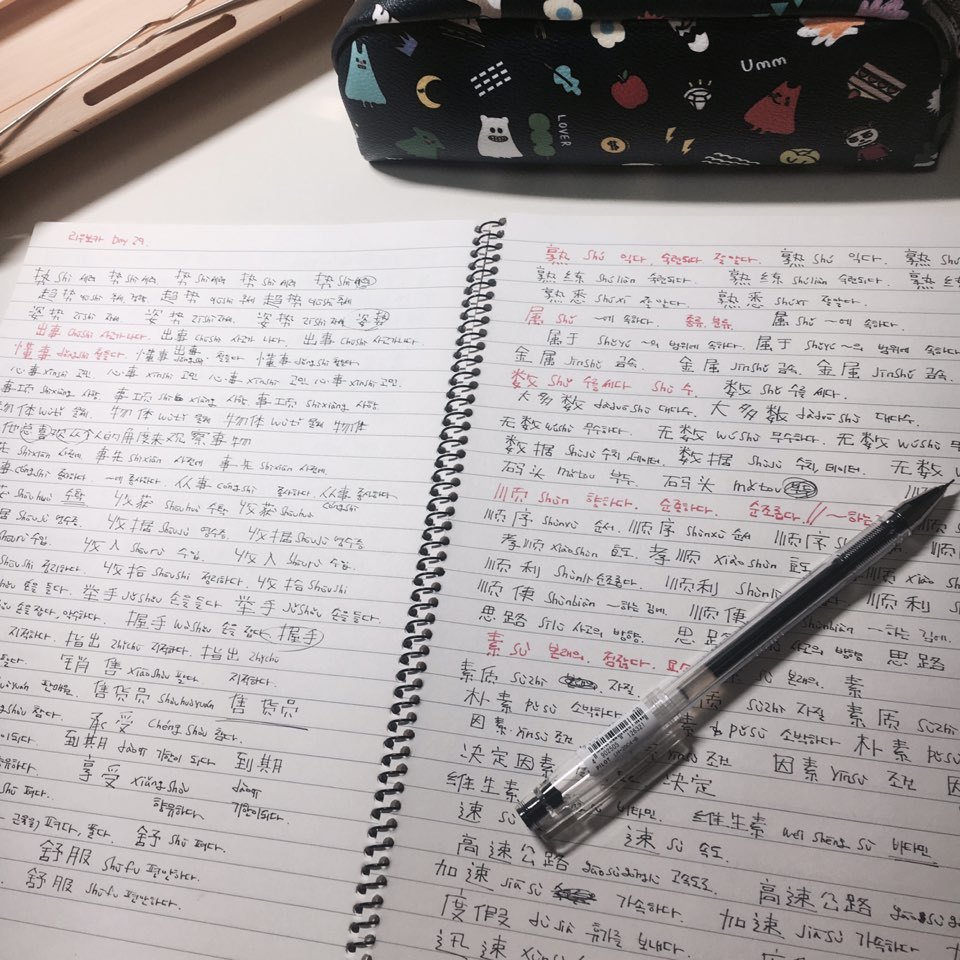 Umm
LOVER
리우보카 Day 29.
势 shì 세력 势 shì 세력 势 shì 세력 势 shì 세력
趋势 qūshì 추세, 경향 趋势 qūshì 추세 趋势 qūshì 추세
姿势 zīshì 자세. 姿势 zīshì 자세. 姿势 zīshì 자세 姿势
出事 chūshì 사고가 나다 出事 chūshì 사고가 나다. 出事 chūshì 사고가 나다.
懂事 dǒngshì 철들다. 懂事 dǒngshì 철들다 懂事 dǒngshì 철들다.
心事 xīnshì 고민. 心事 xīnshì 고민. 心事 xīnshì 고민 心事 xīnshì 고민.
事项 shìxiàng 사항. 事项 shìxiàng 사항 事项 shìxiàng 사항
物体 wùtǐ 물체. 物体 wùtǐ 물체 物体 wùtǐ 물체 物体
他总喜欢从个人的角度来观察事物
事先 shìxiān 사전에 事先 shìxiān 사전에
从事 cóngshì 종사하다. 从事 cóngshì 종사하다. 从事 종사하다. cóngshì
shōuhuò 수확 收获 shōuhuò 수확 收获 shōuhuò
shōujù 영수증. 收据 shōujù 영수증. 收据 shōujù 영수증.
shōurù 수입. 收入 shōurù 수입. 收入 shōurù 수입.
shōushi 정리하다. 收拾 shōushi 정리하다. 收拾 shōushi
손을 들다. 举手 jǔshǒu 손을 들다 举手 jǔshǒu 손을 들다.
손을 잡다, 악수하다. 握手 wòshǒu 손을 잡다. 握手
지적하다. 指出 zhǐchū 지적하다. 指出 zhǐchū
销售 xiāoshòu 팔다 지적하다.
판매원. 售货员 shòuhuòyuán 售货员
承受 chéngshòu 참다.
到期 dàoqī 기한이 되다 到期
享受 xiǎngshòu dàoqī
펴다. 향유하다. 기한이되다.
펴다, 풀다. 舒 shū 펴다.
舒服 shūfu 편안하다.
舒服 shūfu 편안하다.
熟 shú 익다, 숙련되다, 잘 알다. 熟 shú 익다. 熟 shú
熟练 shúliàn 숙련되다. 熟练 shúliàn 숙련되다. 熟练
熟悉 shúxī 잘 알다. 熟悉 shúxī 잘알다.
属 shǔ ~에 속하다. 종류, 분류. 属 shǔ ~에 속하다.
属于 shǔyú ~의 범위에 속하다. 属于 shǔyú ~의 범위에 속하다
金属 jīnshǔ 금속. 金属 jīnshǔ 금속. 金属 jīnshǔ 금속.
数 shǔ 수를 세다 shù 수. 数 shǔ 수를 세다.
大多数 dàduōshù 대다수. 大多数 dàduōshù 대다수.
无数 wúshù 무수하다. 无数 wúshù 무수하다. 无数 wúshù 무
数据 shùjù 수치, 데이터. 数据 shùjù 수치, 데이터. 无数
码头 mǎtou 부두. 码头 mǎtou
顺 shùn 향하다. 순종하다. 순조롭다. // ~하는
顺序 shùnxù 순서. 顺序 shùnxù 순서 顺序
孝顺 xiàoshùn 효도. 孝顺 xiàoshùn 효도 孝顺 xiàoshùn
顺利 shùnlì 순조롭다. 顺利 shùnlì 顺利
顺便 shùnbiàn ~하는 김에. 顺便 shùnbiàn ~하는 김에.
思路 sīlù 사고의 방향. 思路 사고의 방향 思路
素 sù 본래의, 점잖다. sù 본래의. 素
素质 sùzhì 자질. 素质 sùzhì 자질 素质 sùzhì
朴素 pǔsù 소박하다 朴素 pǔsù 소박하다 朴素 pǔsù
因素 yīnsù 조건 yīnsù 조건 因素 yīnsù 조건
决定因素 决定
维生素 비타민. 维生素 wéi shēng sù 비타민
速 sù 速 sù 속도.
高速公路 gāosùgōnglù 고속도로 高速公路
加速 jiāsù 가속하다. 加速 jiāsù 가속하다
度假 dùjià 휴가를 보내다.
迅速